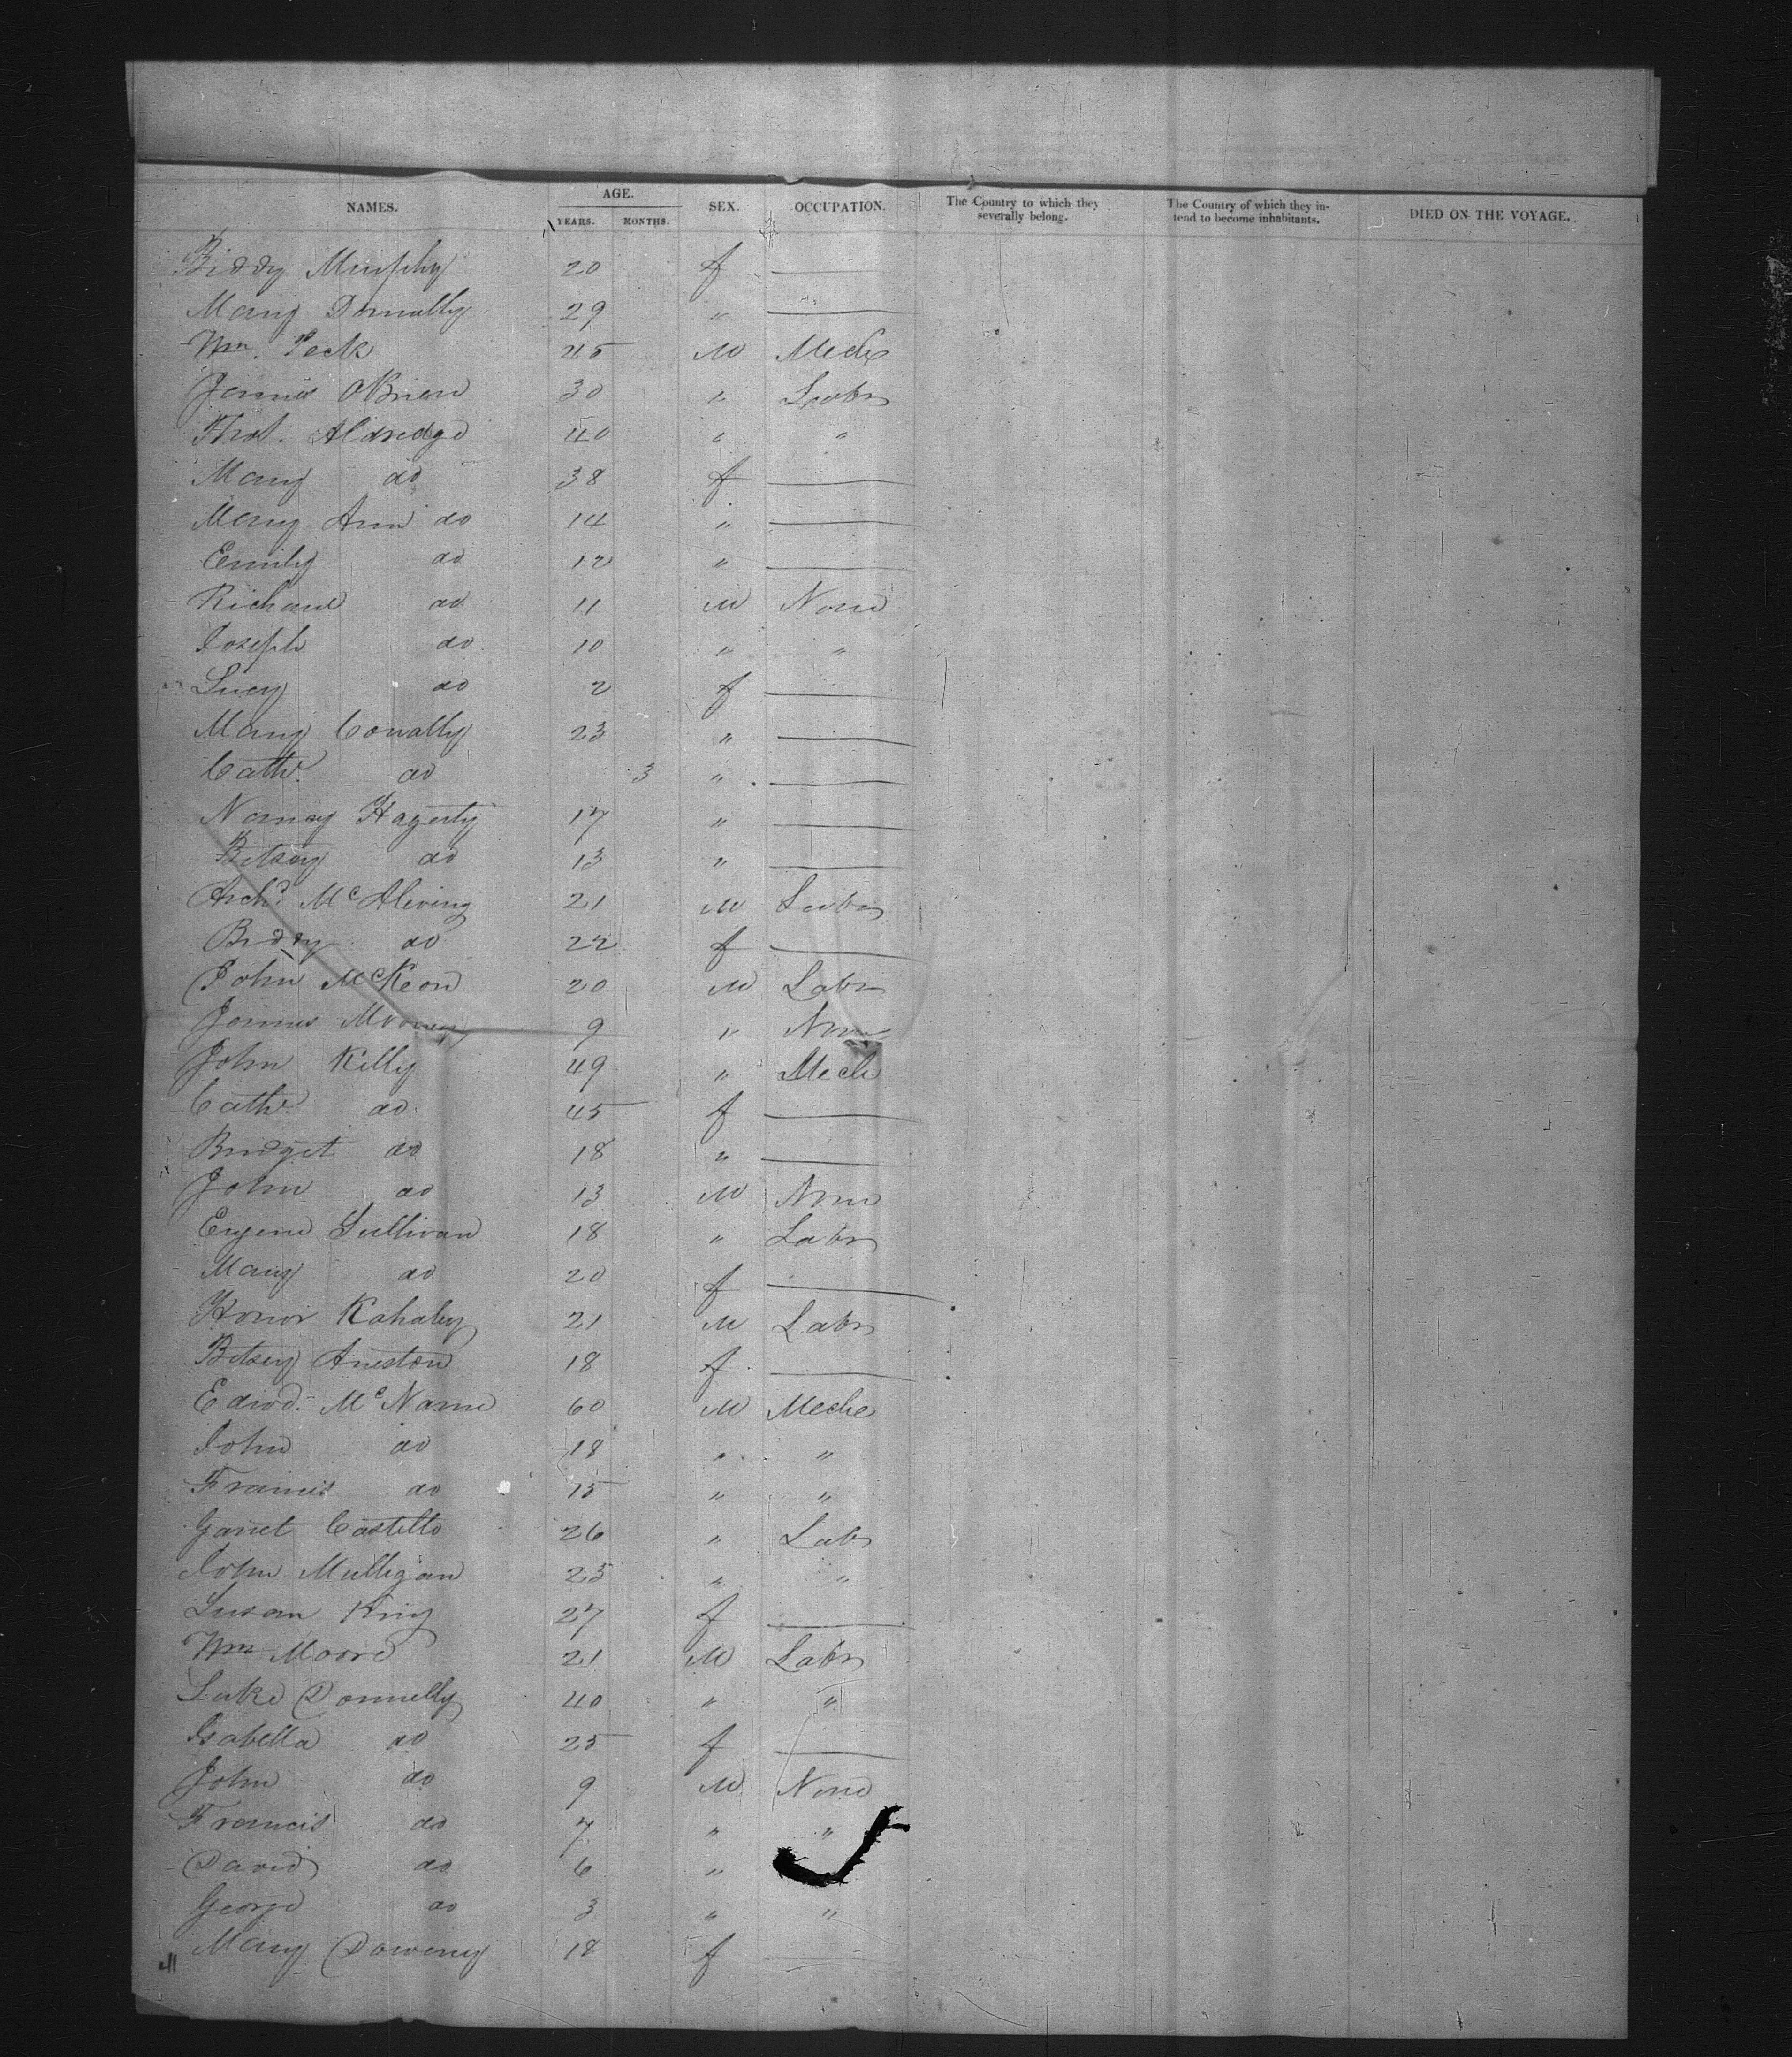 NAMES. AGE. YEARS. MONTHS. SEX. OCCUPATION. The Country to which they severally belong. The Country of which they intend to become inhabitants. DIED ON THE VOYAGE.
Biddy Murphy 20 f —
Mary Donnally 29 " —
Wm. Peck 45 M Mech
James OBrien 30 " Labr
Thos. Aldredge 40 " "
Mary do 38 f —
Mary Ann do 14 " —
Emily do 12 " —
Richard do 11 M None
Joseph do 10 " "
Lucy do 2 f —
Mary Conally 23 " —
Cathe. do 3 " —
Nancy Hagerty 17 " —
Betsey do 13 " —
Archd. 21 M Labr
Biddy do 22 f —
John McKeon 20 M Labr
James Mooney 9 " None
John Killy 49 " Mech
Cathe. do 45 f —
Bridget do 18 " —
John do 13 M None
Eugene Sullivan 18 " Labr
Mary do 20 f —
Honor Kahaley 21 M Labr
Betsey 18 f —
Edwd. McName 60 M Meche
John do 18 " "
Francis do 15 " "
Garret Costello 26 " Labr
John Mulligan 25 " "
Susan King 27 f —
Wm Moore 21 M Labr
Luke Donnelly 40 " "
Isabella do 25 f —
John do 9 M None
Francis do 7 " "
David do 6 "
George do 3 " "
Mary Downey 18 f —
41